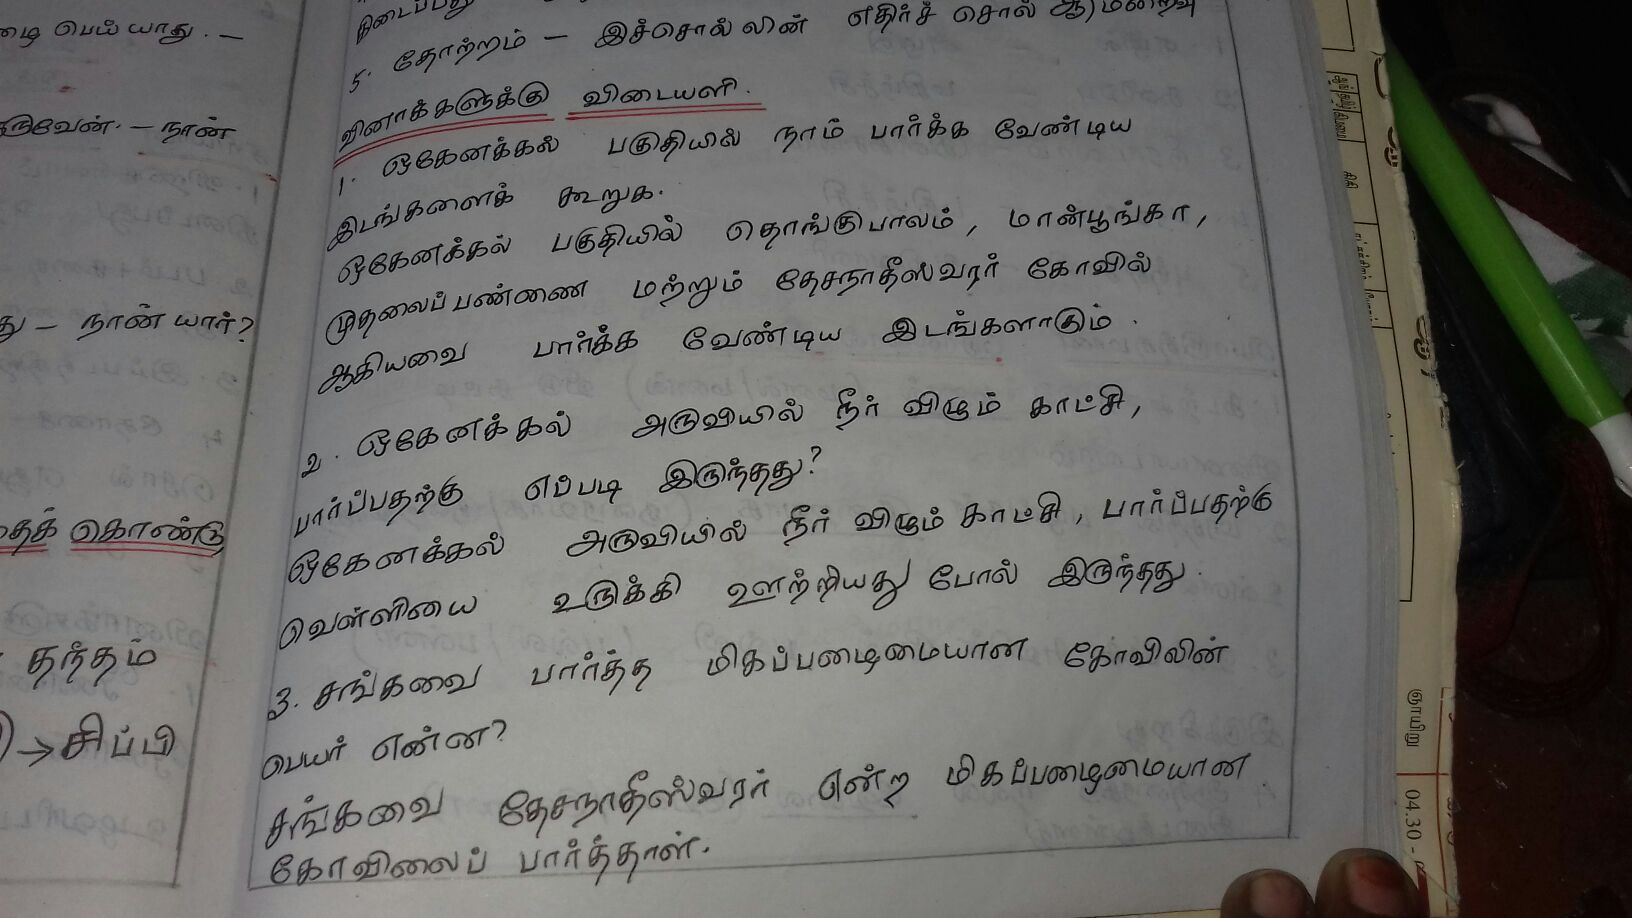 டை பெய்யாது. –
ருவேன். – நான்
து – நான் யார்?
தைக் கொண்டு
தந்தம்
→ சிப்பி
5. தோற்றம் – இச்சொல்லின் எதிர்ச் சொல்
வினாக்களுக்கு விடையளி.
1. ஒகேனக்கல் பகுதியில் நாம் பார்க்க வேண்டிய
இடங்களைக் கூறுக.
ஒகேனக்கல் பகுதியில் தொங்குபாலம், மான்பூங்கா,
முதலைப்பண்ணை மற்றும் தேசநாதீஸ்வரர் கோவில்
ஆகியவை பார்க்க வேண்டிய இடங்களாகும்.
2. ஒகேனக்கல் அருவியில் நீர் விழும் காட்சி,
பார்ப்பதற்கு எப்படி இருந்தது?
ஒகேனக்கல் அருவியில் நீர் விழும் காட்சி, பார்ப்பதற்கு
வெள்ளியை உருக்கி ஊற்றியது போல் இருந்தது.
3. சங்கவை பார்த்த மிகப்பழைமையான கோவிலின்
பெயர் என்ன?
சங்கவை தேசநாதீஸ்வரர் என்ற மிகப்பழைமையான
கோவிலைப் பார்த்தாள்.
ஞாயிறு
04.30 -